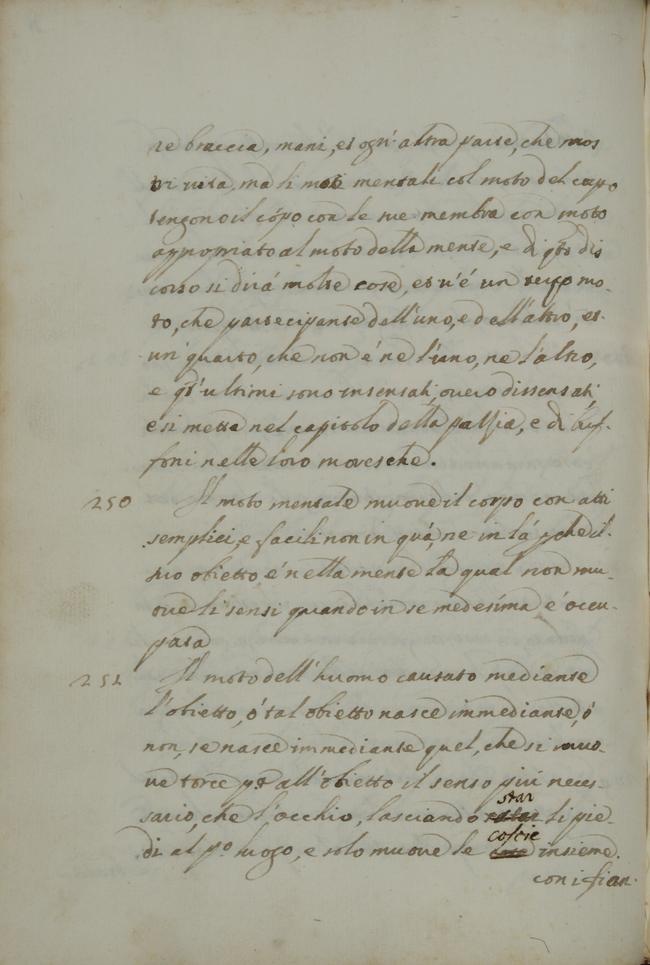 re braccia, mani, et ogn'altra parte, che mos
tri vita, ma li moti mentali col moto del corpo
tengono il corpo con le sue membra con moto
appropriato al moto della mente, e di qto dis
corso si dirá molte cose, et v'é un terzo mo-
to, che partecipante dell'uno, e dell'altro, et
un quarto, che non é ne l'uno, ne l'altro,
e qt'ultimi sono insensati, overo dissensati
e si metta nel capitolo della paZZia, e di buf-
foni nelle loro moresche.
250 Il moto mentale muove il corpo con atti
semplici, e facili non in quá, ne in lá pche il
suo obietto é nella mente la qual non mu-
ove li sensi quando in se medesima é occu-
pata
251 Il moto dell'huomo causato mediante
l'obietto, ó tal obietto nasce immediante, ó
non, se nasce immediante quel, che si muo-
ve torce po all'obietto il senso piú neces-
sario, che l'occhio, lasciando star li pie-
di al po luogo, e solo muove le coscie insieme
con i fian-